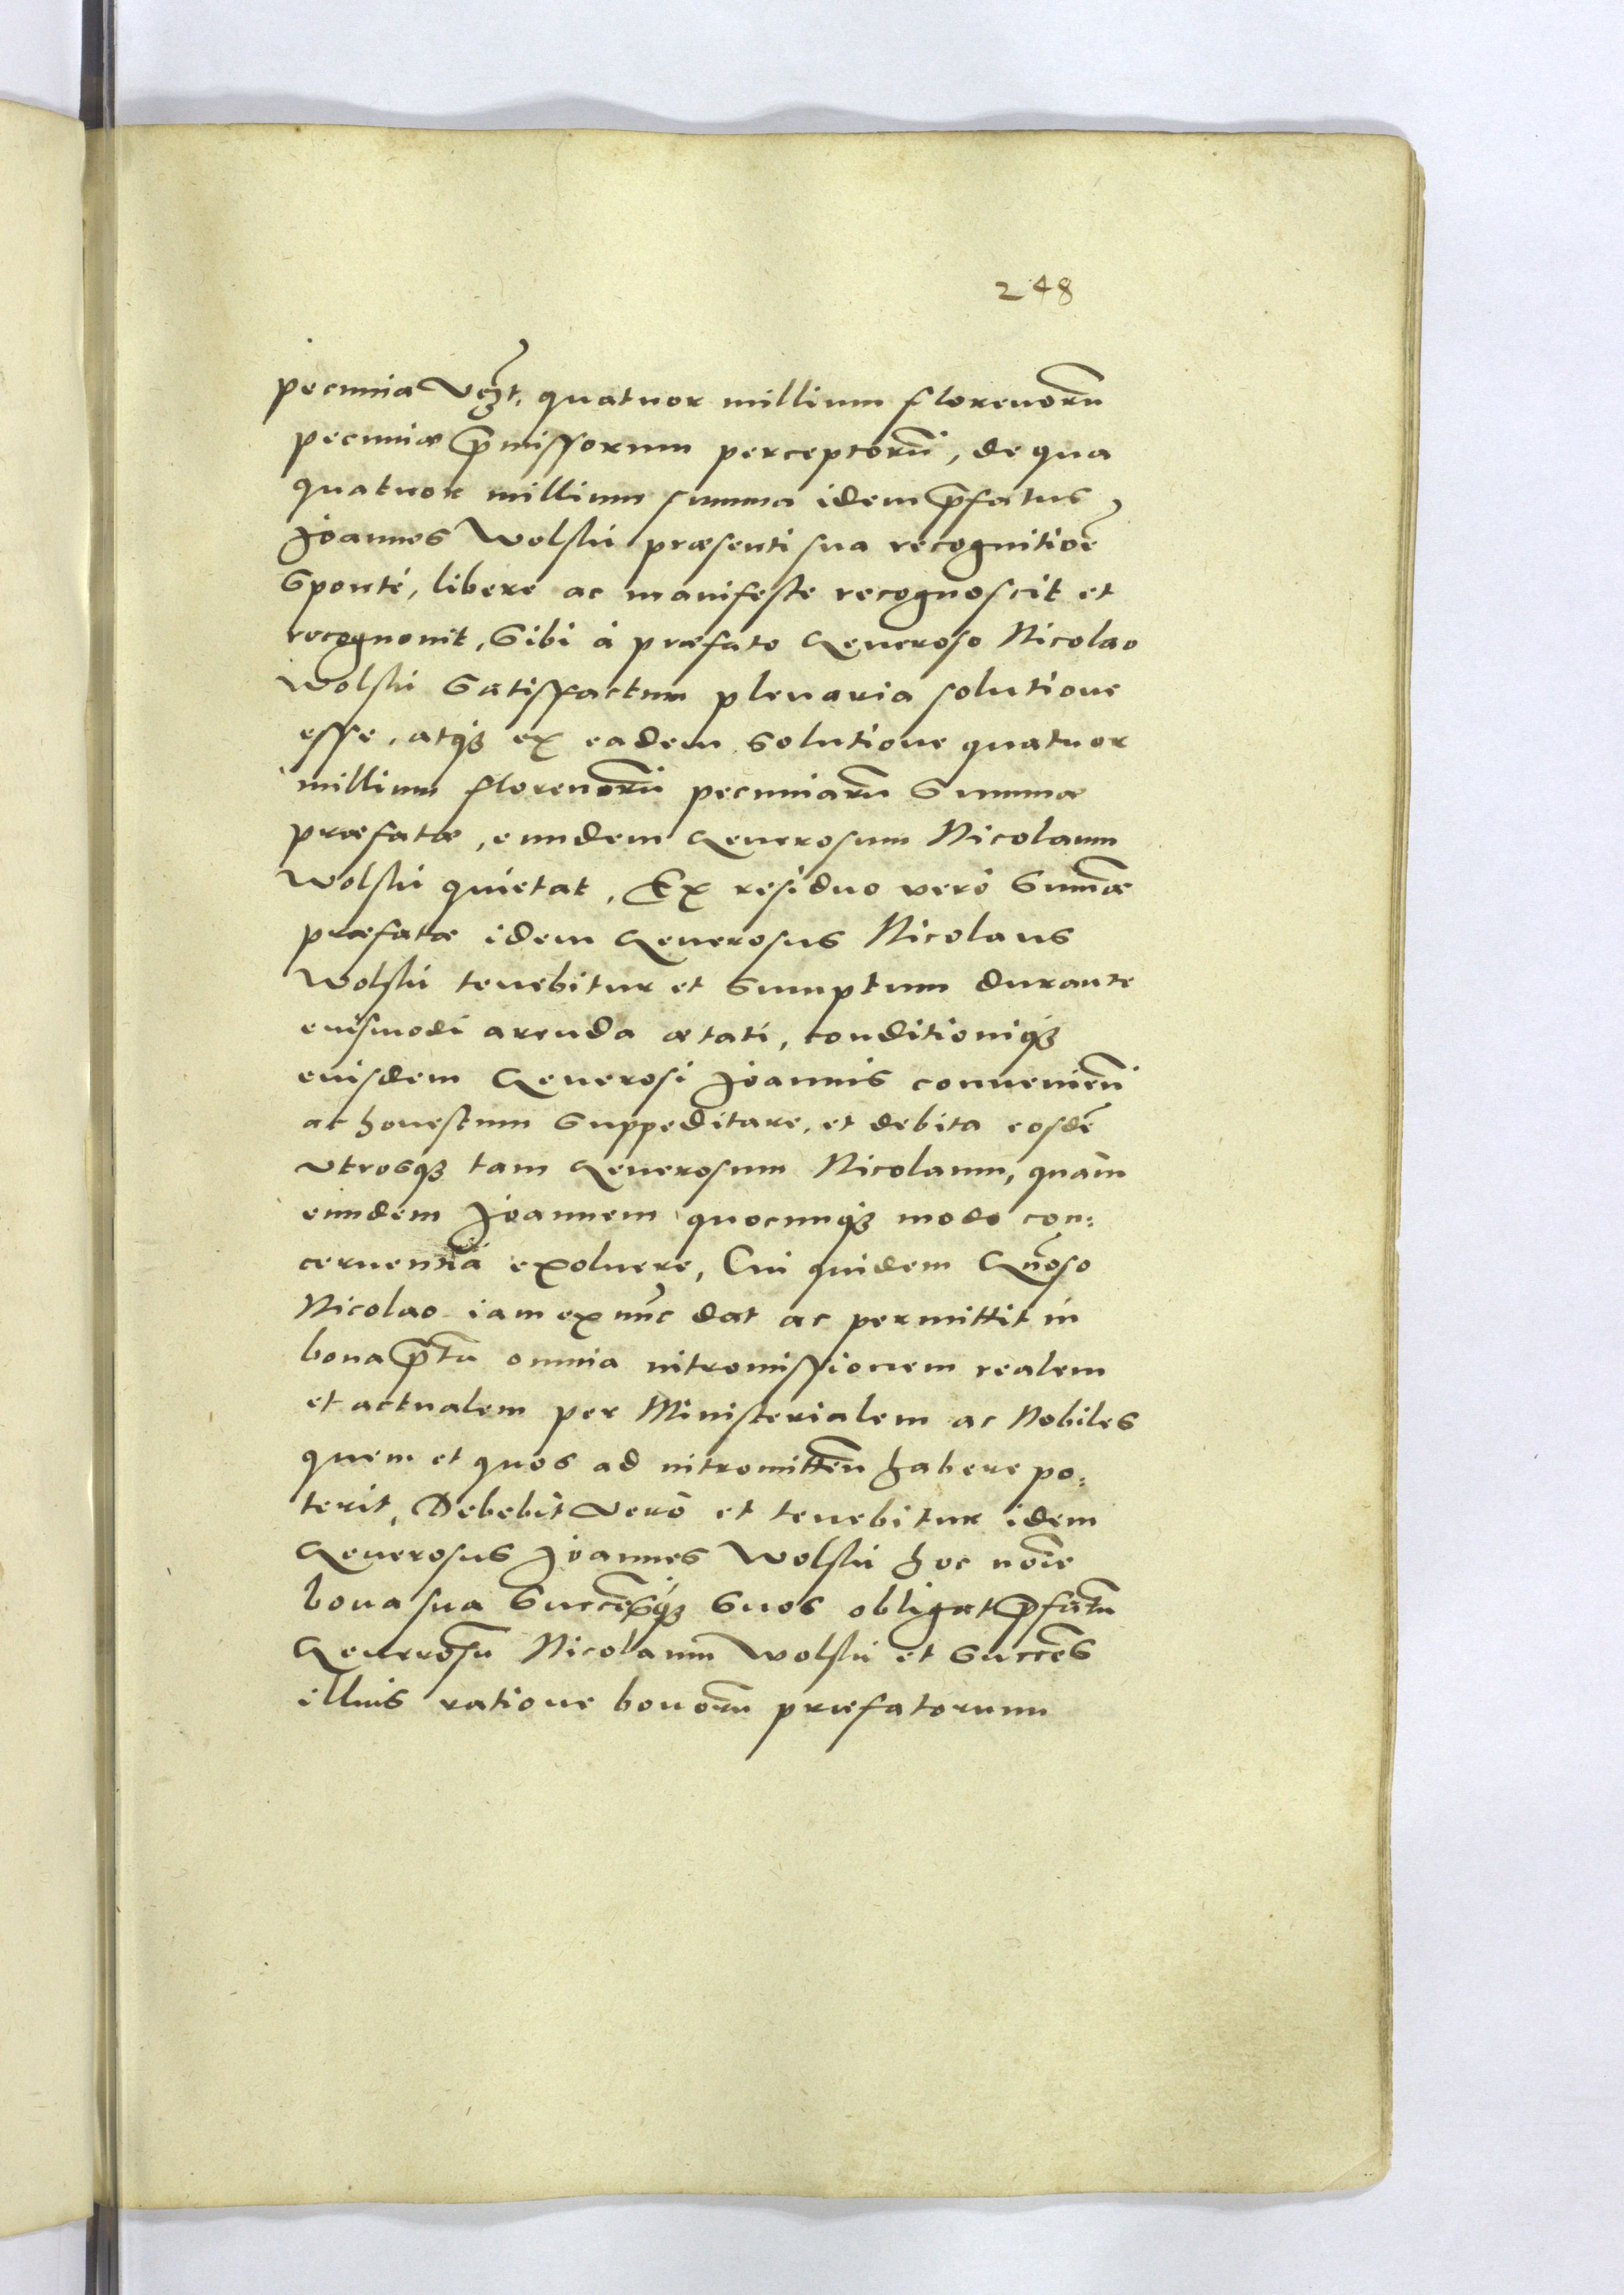 248
pecunia vꝫt. quatuor millium florenorũ
pecuniæ p̃missorum perceptorũ, de qua
quatuor millium summa idem p̃fatus
Joannes Wolski præsenti sua recognitioẽ
sponté, libere ac manifeste recognoscit et
recognouit, sibi à præfato Generoso Nicolao
Wolski satisfactum plenaria solutione
esse, atqꝫ ex eadem solutione quatuor
millium florenorũ pecuniarũ summæ
præfatæ, eundem Generosum Nicolaum
Wolski quietat, Ex residuo verò sum̃æ
præfatæ idem Generosus Nicolaus
Wolski tenebitur et sumptum durante
euismodi arenda ætati, conditioniqꝫ
euisdem Generosi Joannis conuenieñ
ac honestum suppeditare, et debita eosdẽ
vtrosqꝫ tam Generosum Nicolaum, quàm
eundem Joannem quocunqꝫ modo con:
cernentia exoluere, Cui quidem Gñoso
Nicolao iam ex nũc dat ac permittit in
bona p̃ta omnia intromissionem realem
et actualem per Ministerialem ac Nobiles
quem et quos ad intromitteñ habere po:
terit, Debebit verò et tenebitur idem
Generosus Joannes Wolski hoc noĩe
bona sua succẽsqꝫ suos obligat p̃fatũ
Generosũ Nicolaum Wolski et succẽs
illius ratione bonorũ præfatorum